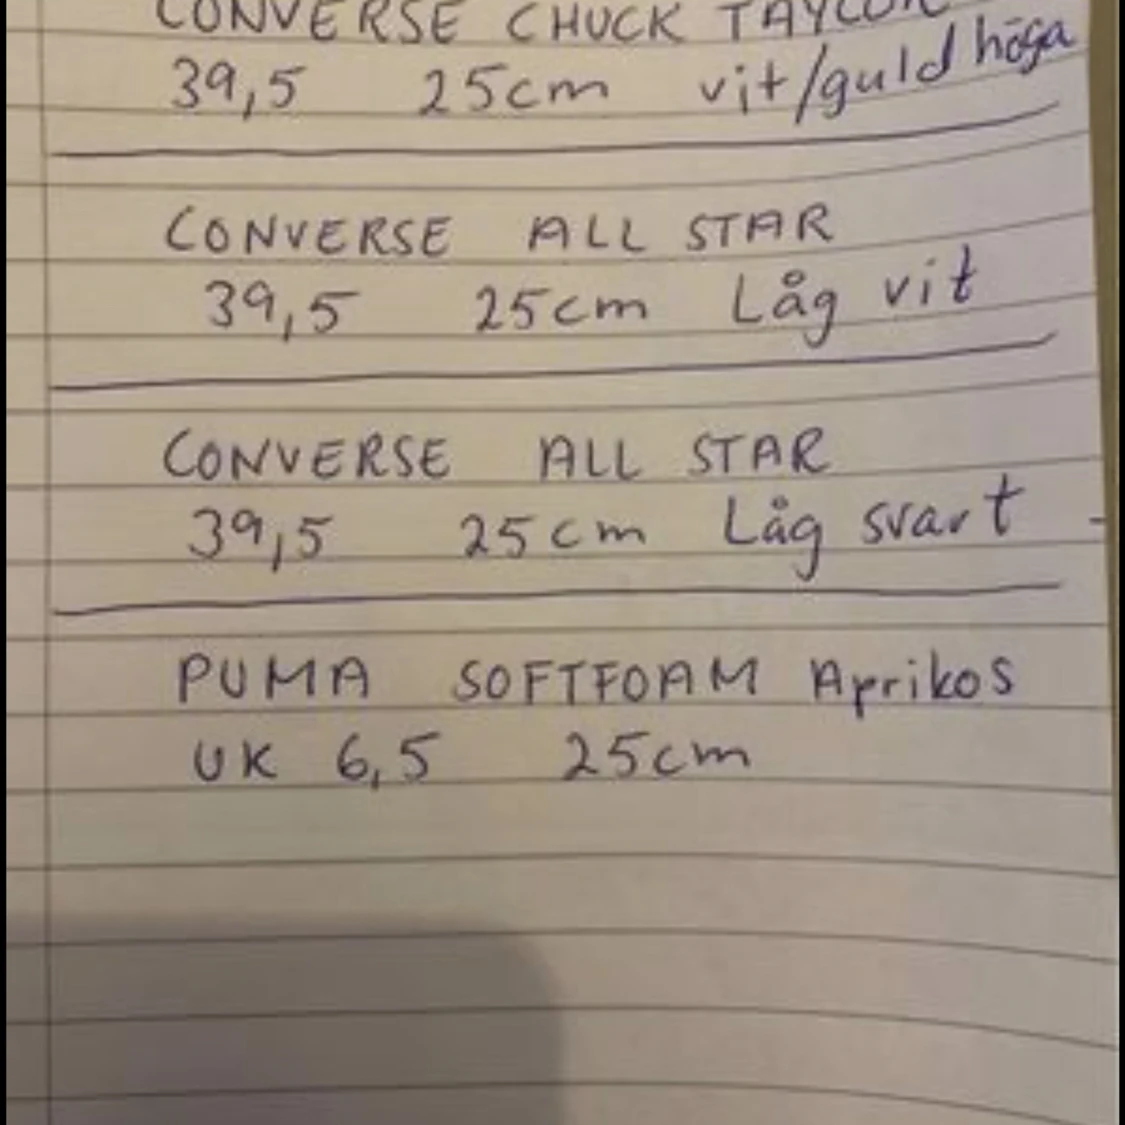 CONVERSE CHUCK TAYLOR
39,5 25cm vit/guld höga
CONVERSE ALL STAR
39,5 25cm Låg vit
CONVERSE ALL STAR
39,5 25cm Låg svart
PUMA SOFTFOAM Aprikos
UK 6,5 25cm